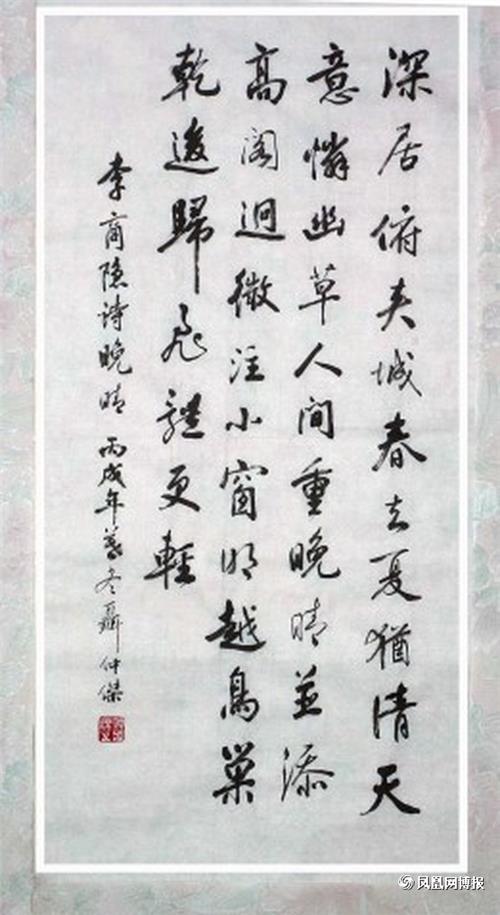 深居俯夹城春去夏猶清天
意憐幽草人间重晚晴並添
高阁迥微注小窗明越鳥巢
乾後歸飛體更輕
李商隐诗晚晴 丙戌年冬聶仲傑
凤凰网博报